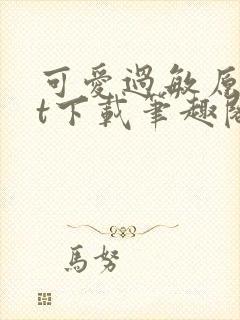 可愛過敏原
t下載筆趣閣
馬努